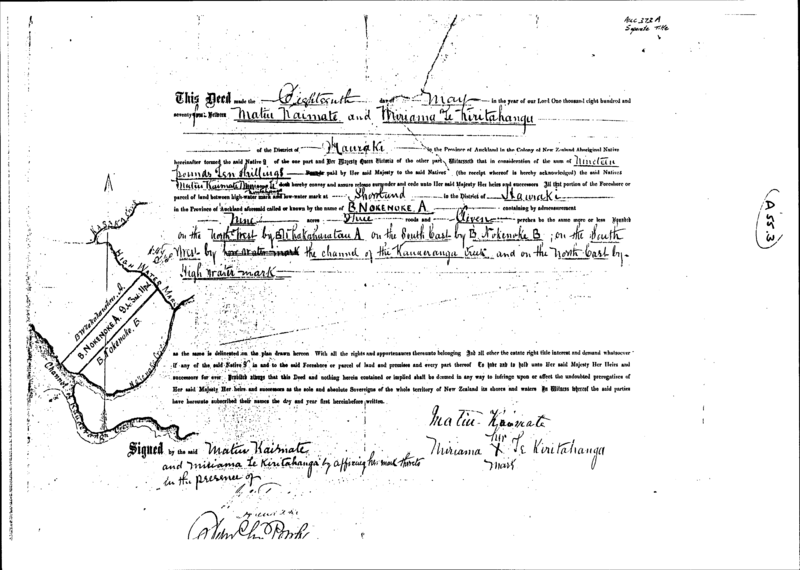 AUC 373 A
Separate Title
A 553
This Deed made the Eighteenth day of May in the year of our Lord One thousand eight hundred and
seventy Between Matiu Kaimate and Miriama Te Kiritahanga
of the District of Hauraki in the Province of Auckland in the Colony of New Zealand Aboriginal Native
hereinafter termed the said Natives of the one part and Her Majesty Queen Victoria of the other part Witnesseth that in consideration of the sum of Nineteen
pounds Ten shillings paid by Her said Majesty to the said Natives (the receipt whereof is hereby acknowledged) the said Natives
Matiu Kaimate Miriama Te do hereby convey and assure release surrender and cede unto Her said Majesty Her heirs and successors All that portion of the Foreshore or
parcel of land between high-water mark and low-water mark at Shortland in the District of Hauraki
in the Province of Auckland aforesaid called or known by the name of B. NOKENOKE A containing by admeasurement
Nine acres Three roods and Eleven perches be the same more or less Bounded
on the North West by B. Whakaharatau A on the South East by B. Nokenoke B ; on the South
West by low water mark the channel of the Kauaeranga Creek and on the North East by
High Water mark
HIGH WATER MARK
B. NOKENOKE A. 9a. 3r. 11p.
B. Nokenoke. B.
Channel of Kauaeranga Creek
as the same is delineated on the plan drawn hereon With all the rights and appurtenances thereunto belonging And all other the estate right title interest and demand whatsoever
if any of the said Natives in and to the said Foreshore or parcel of land and premises and every part thereof To have and to hold unto Her said Majesty Her Heirs and
successors for ever Provided always that this Deed and nothing herein contained or implied shall be deemed in any way to infringe upon or affect the undoubted prerogatives of
Her said Majesty Her heirs and successors as the sole and absolute Sovereigns of the whole territory of New Zealand its shores and waters In Witness whereof the said parties
have hereunto subscribed their names the day and year first hereinbefore written.
Matiu Kaimate
her
Miriama X Te Kiritahanga
mark
Signed by the said Matiu Kaimate
and Miriama Te Kiritahanga by affixing her mark thereto
in the presence of